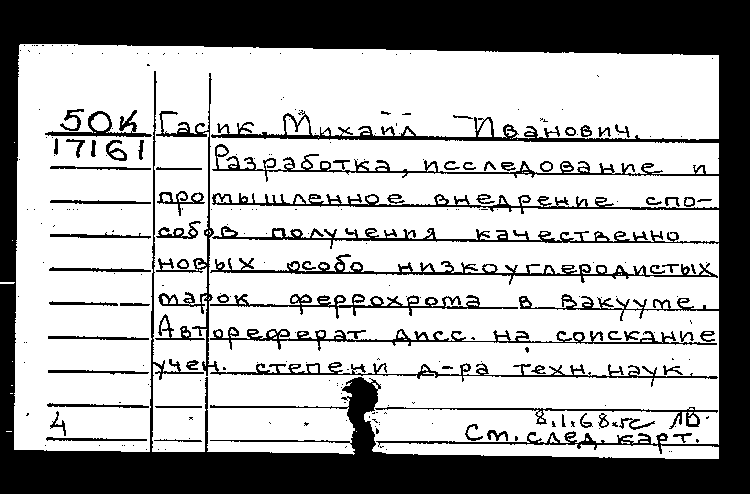 50К Гасик, Михаил Иванович.
17161 Разработка, исследование и
промышленное внедрение спо-
собов получения качественно
новых особо низкоуглеродистых
марок феррохрома в вакууме.
Автореферат дисс. на соискание
учен. степени д-ра техн. наук.
8.1.68.гс ЛВ
4 См. след. карт.